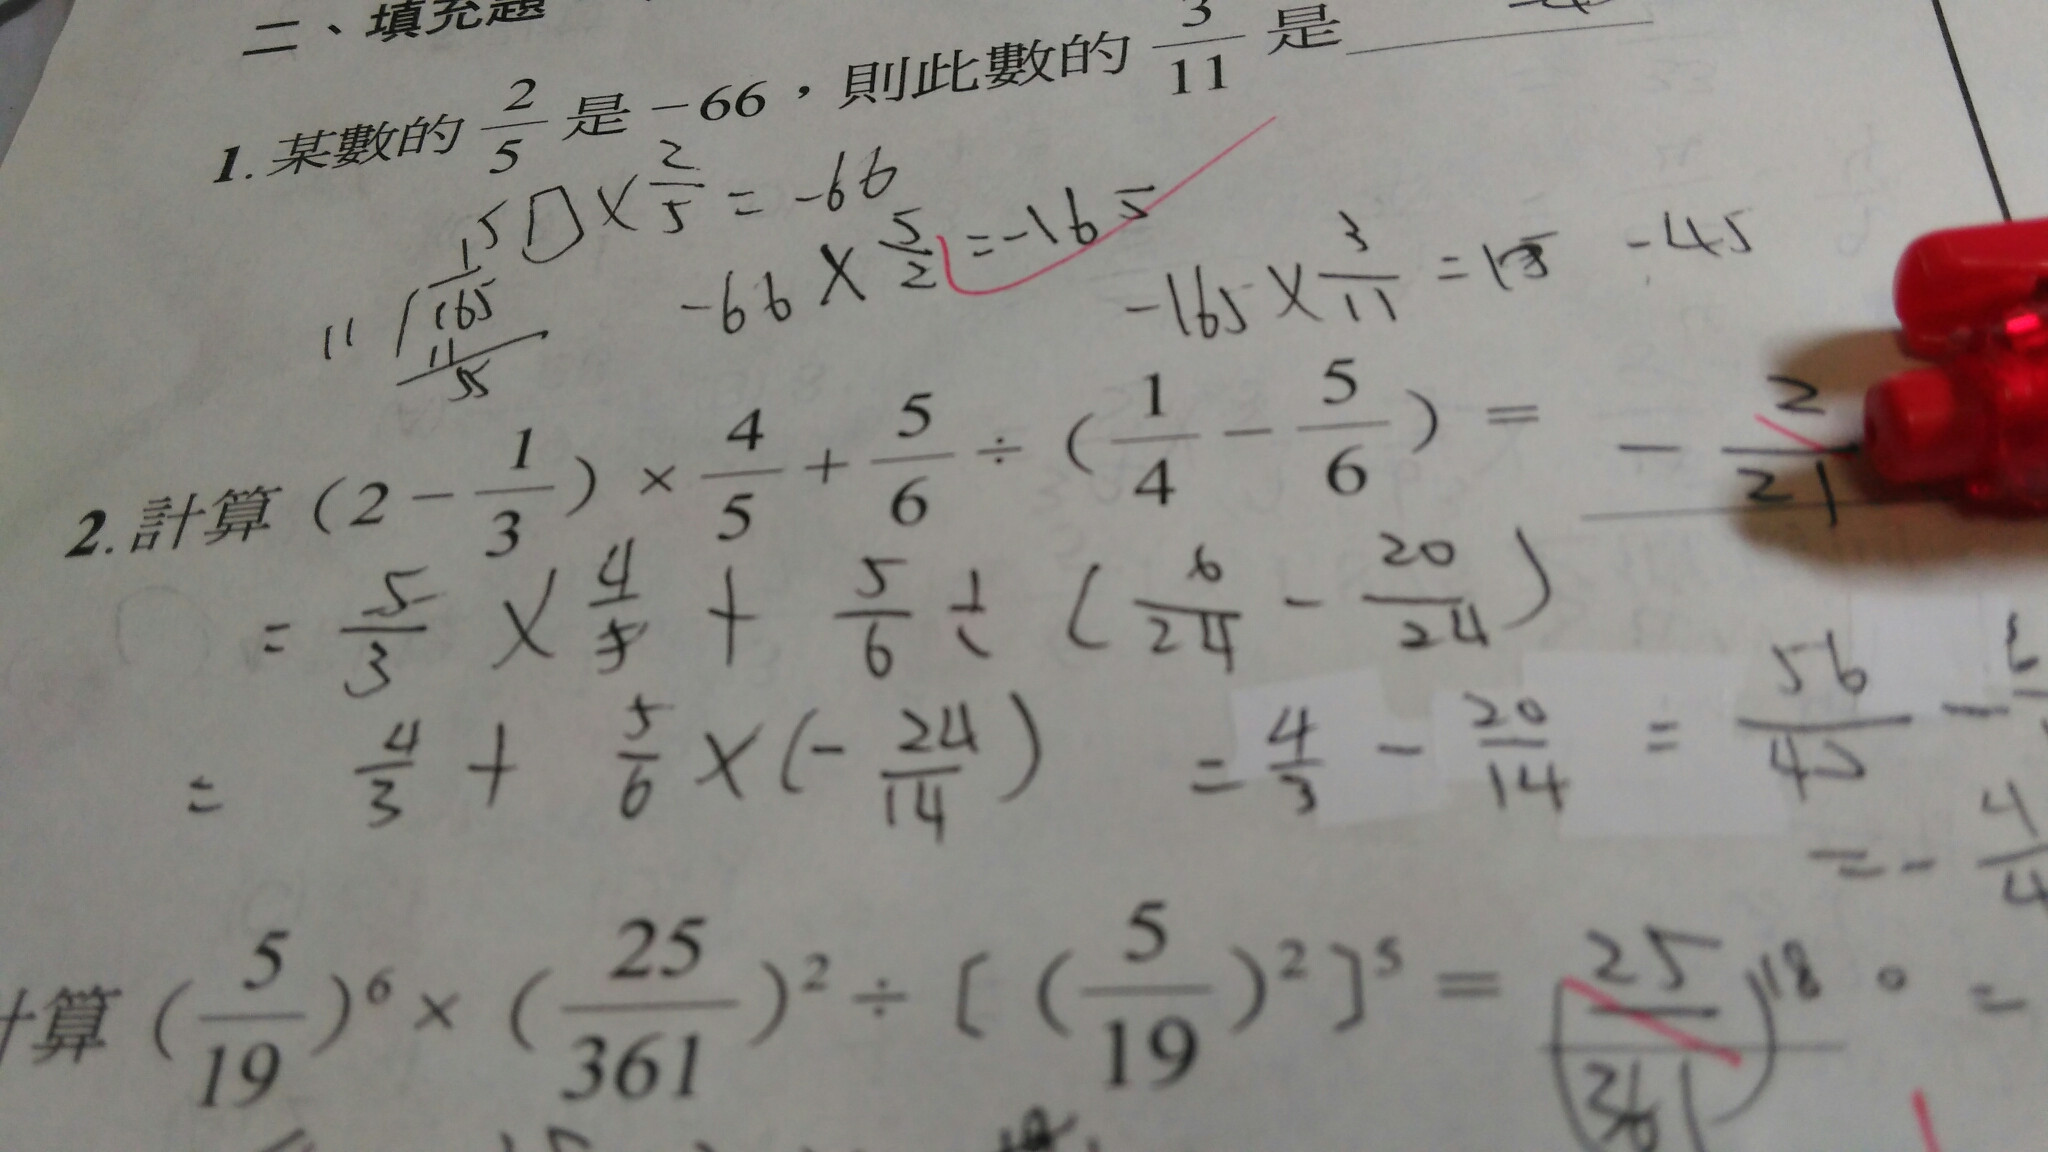 二、填充題
1. 某數的 2/5 是 -66，則此數的 3/11 是
□ × 2/5 = -66
15
11 165
11
55
-66 × 5/2 = -165
-165 × 3/11 = -45
2. 計算 (2 - 1/3) × 4/5 + 5/6 ÷ (1/4 - 5/6) = - 2/21
= 5/3 × 4/5 + 5/6 ÷ (6/24 - 20/24)
= 4/3 + 5/6 × (- 24/14) = 4/3 - 20/14 = 56/42 -
= -
計算 (5/19)^6 × (25/361)^2 ÷ [(5/19)^2]^5 = (25/361)^18 。 =